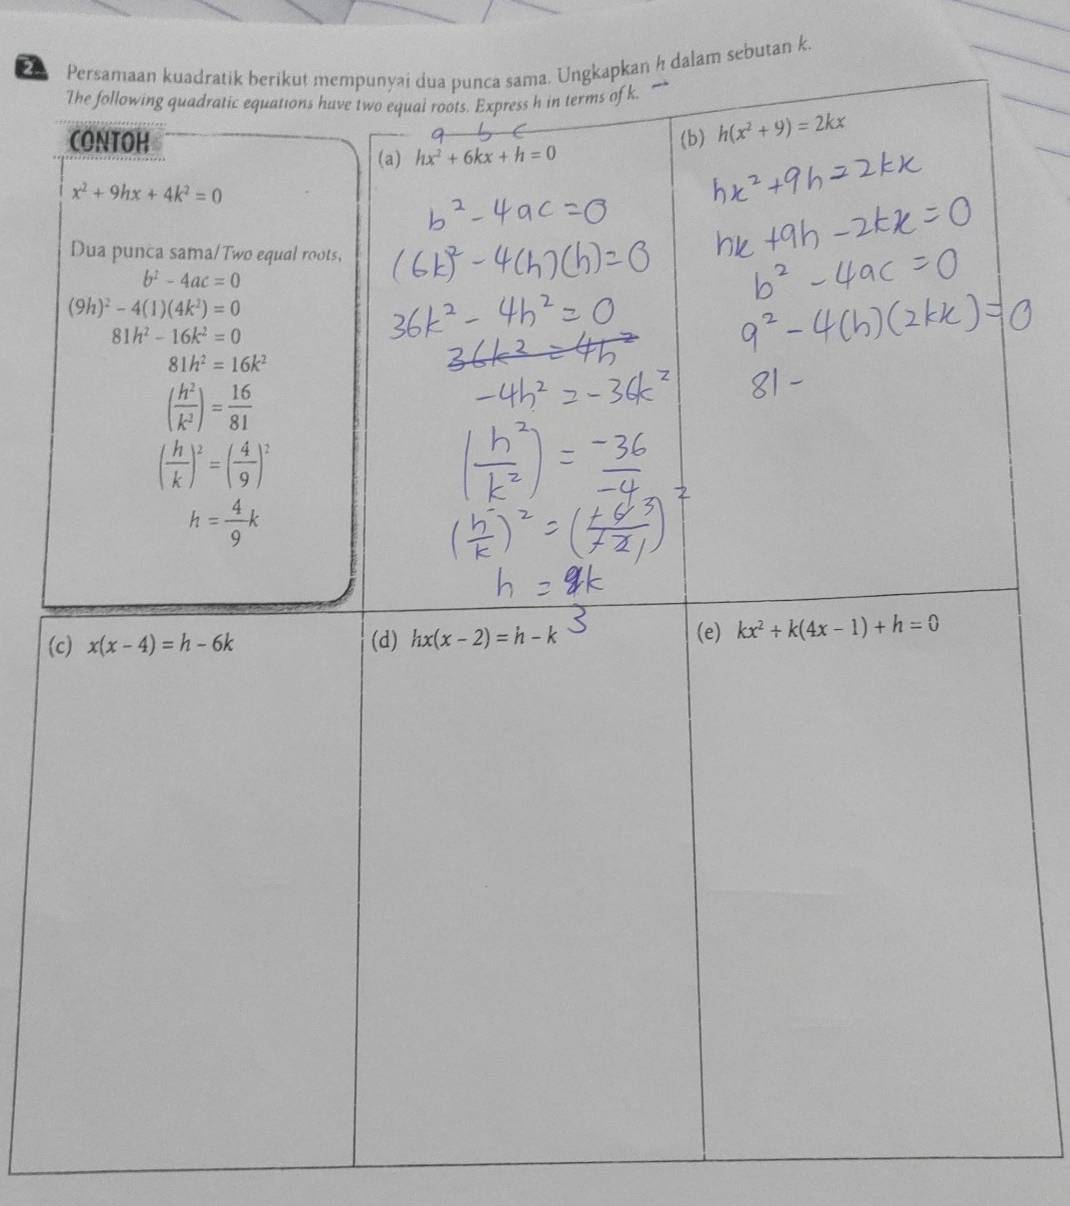 2. Persamaan kuadratik berikut mempunyai dua punca sama. Ungkapkan h dalam sebutan k.
The following quadratic equations have two equal roots. Express h in terms of k.
CONTOH
x² + 9hx + 4k² = 0
Dua punca sama/Two equal roots,
b² - 4ac = 0
(9h)² - 4(1)(4k²) = 0
81h² - 16k² = 0
81h² = 16k²
(h²/k²) = 16/81
(h/k)² = (4/9)²
h = 4/9 k
a b c
(a) hx² + 6kx + h = 0
b² - 4ac = 0
(6k)² - 4(h)(h) = 0
36k² - 4h² = 0
36k² = 4h²
-4h² = -36k²
(h²/k²) = -36/-4
(h/k)² = (+6 3/+2 1)²
h = k
3
(b) h(x² + 9) = 2kx
hx² + 9h = 2kx
hx + 9h - 2kx = 0
b² - 4ac = 0
9² - 4(h)(2kx) = 0
81 -
(c) x(x - 4) = h - 6k
(d) hx(x - 2) = h - k
(e) kx² + k(4x - 1) + h = 0